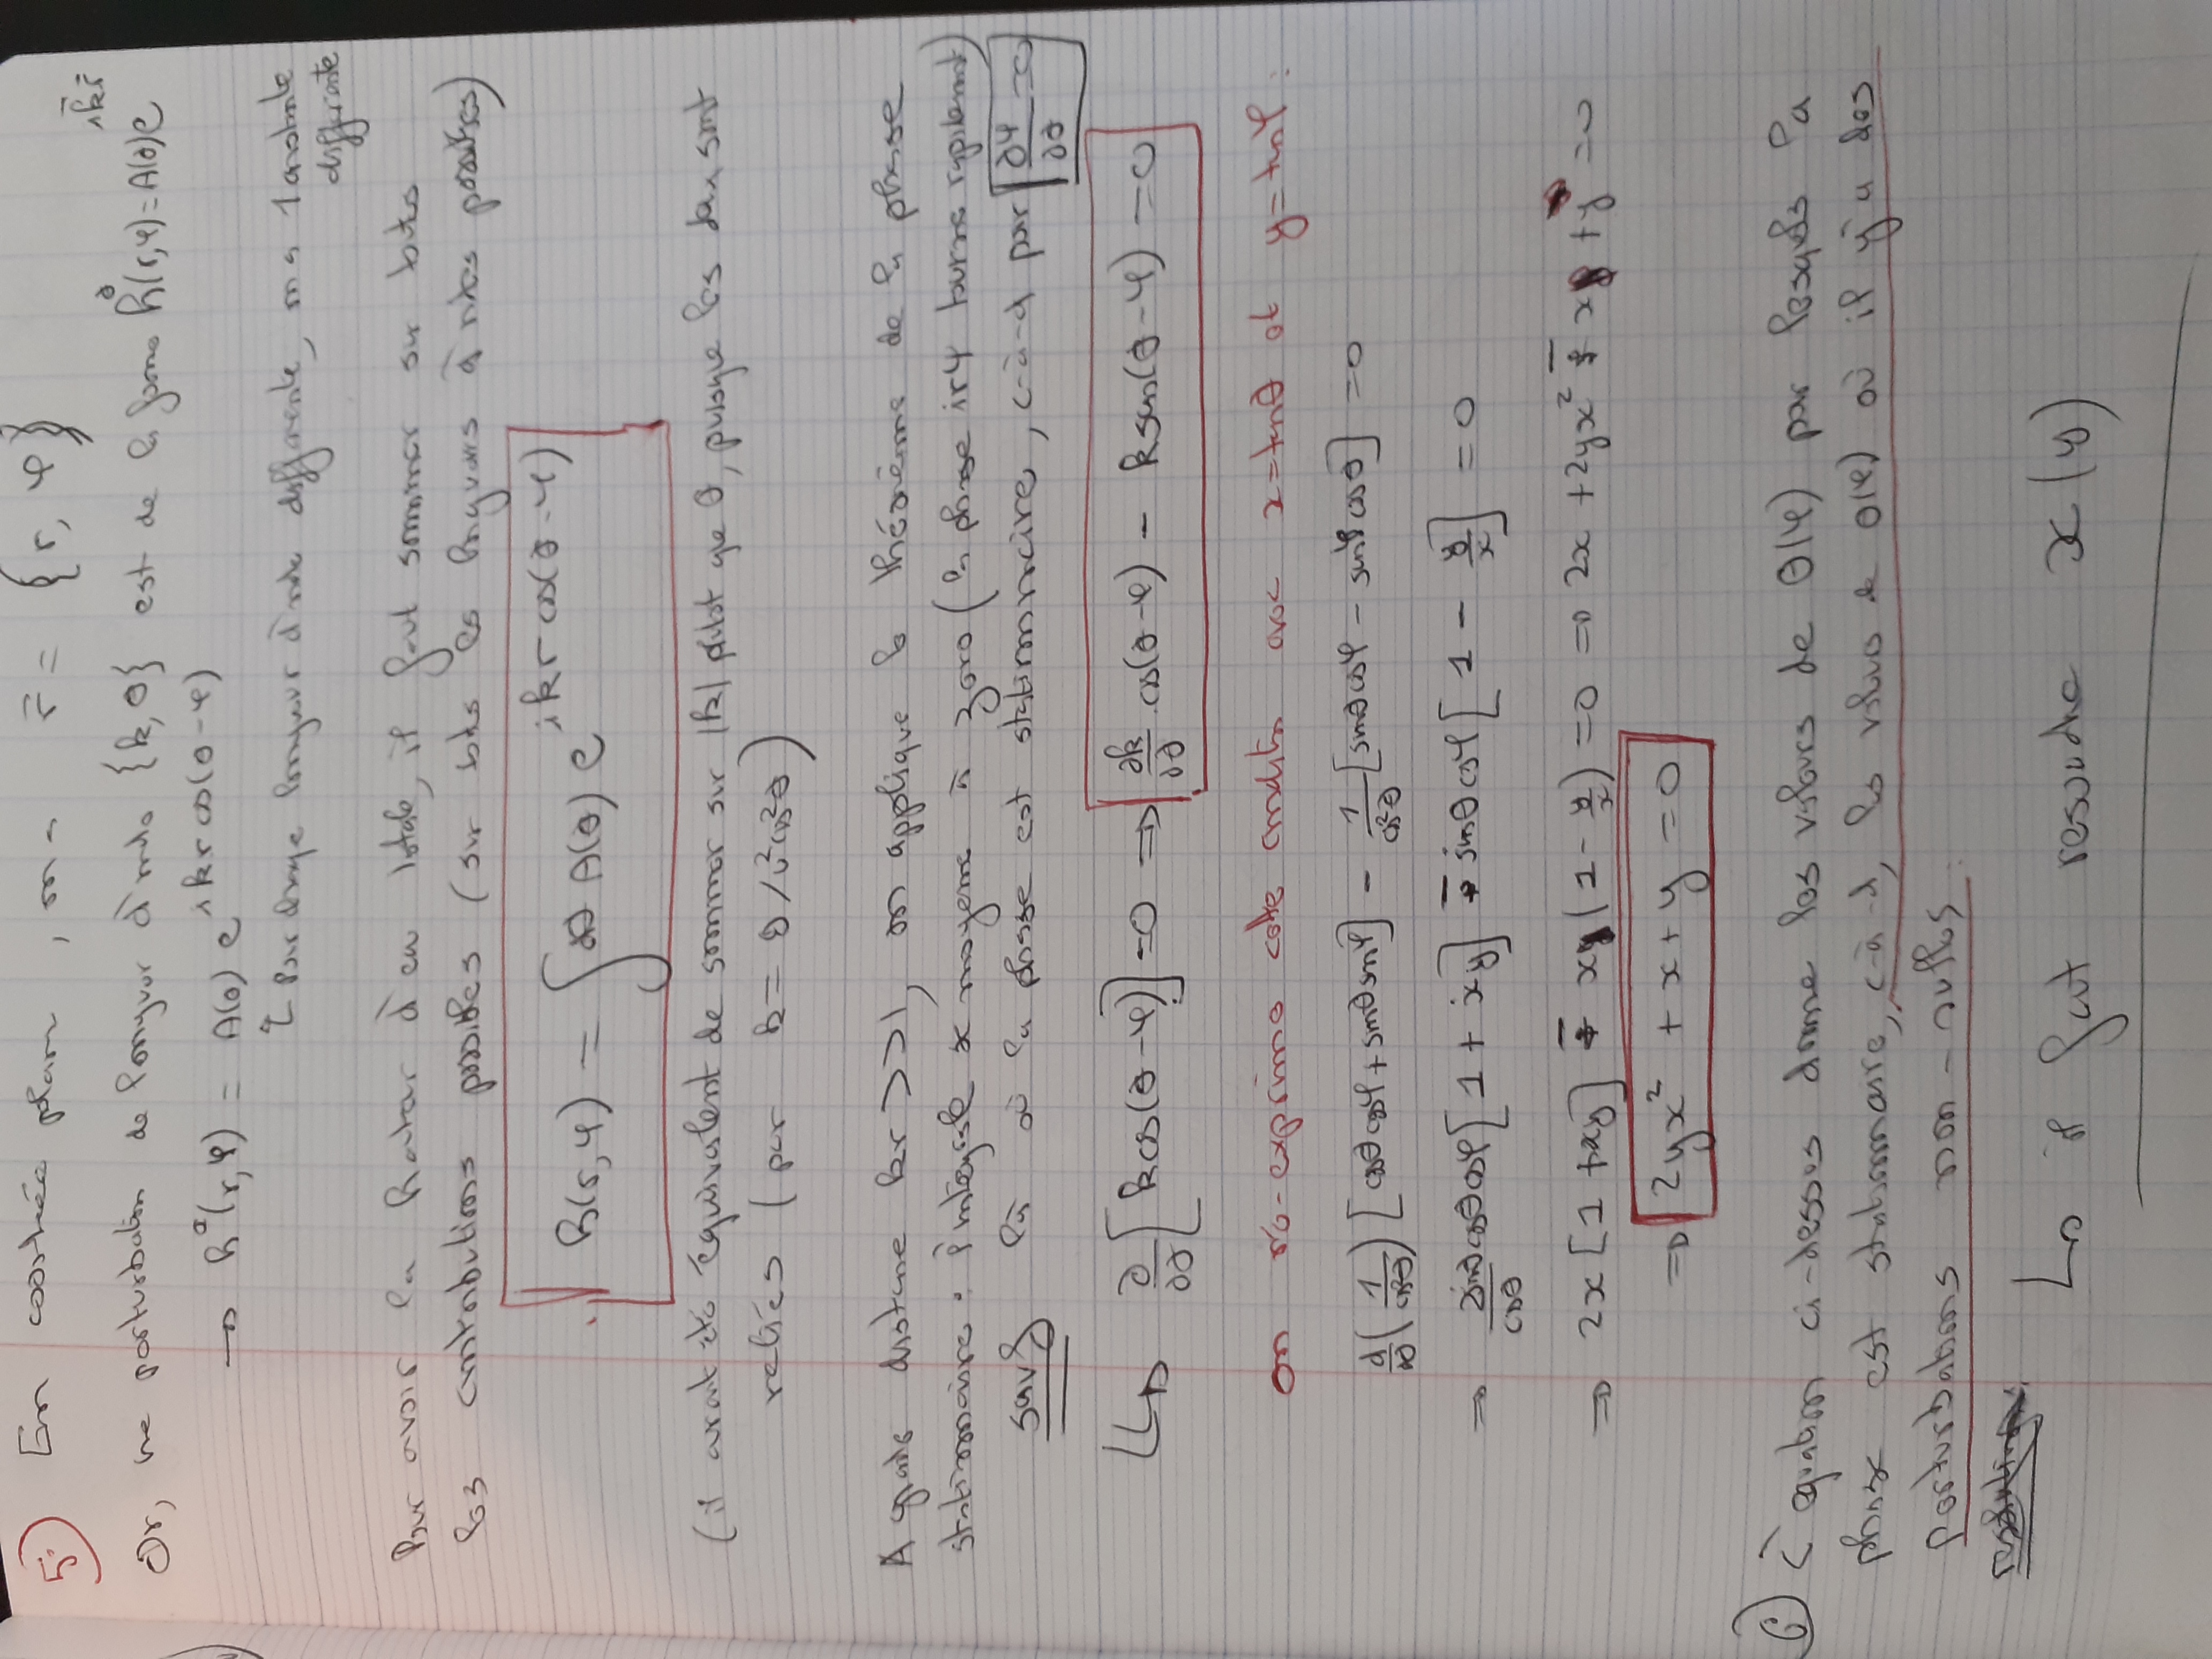 5°) En coordonnée plan, on a r̄ = {r, φ}
Or, une perturbation de longueur d'onde {k, θ} est de la forme h°(r,φ) = A(θ) e^{i k̄ r̄}
→ h°(r,φ) = A(θ) e^{i k r cos(θ-φ)}
↑ pour chaque longueur d'onde différente, on a 1 constante
différente
Pour avoir la hauteur d'eau totale, il faut sommer sur toutes
les contributions possibles (sur toutes les longueurs d'ondes possibles)
h(r,φ) = ∫ dθ A(θ) e^{i k r cos(θ-φ)}
(il aurait été équivalent de sommer sur |k| plutôt que θ, puisque les deux sont
reliés (par k = g/v²cos²θ)
A grande distance kr >> 1, on applique le théorème de la phase
stationnaire : l'intégrale se moyenne à zéro (la phase irψ tourne rapidement)
sauf là où la phase est stationnaire, c-à-d par ∂ψ/∂θ = 0
↳ ∂/∂θ [k cos(θ-φ)] = 0 ⇒ ∂k/∂θ . cos(θ-φ) - k sin(θ-φ) = 0
on ré-exprime cette condition avec x = tanθ et y = tanφ :
d/dθ (1/cos²θ) [cosθcosφ + sinθsinφ] - 1/cos²θ [sinθcosφ - sinφcosθ] = 0
⇒ 2sinθ/cosθ cosθcosφ [1 + xy] - sinθcosφ [1 - y/x] = 0
⇒ 2x [1 + xy] - x (1 - y/x) = 0 ⇒ 2x + 2yx² - x + y = 0
⇒ 2yx² + x + y = 0
6) L'équation ci-dessus donne les valeurs de θ(φ) par lesquels la
phase est stationnaire, c-à-d, les valeurs de θ(φ) où il y a des
perturbations non-nulles.
↳ il faut resoudre x(y)